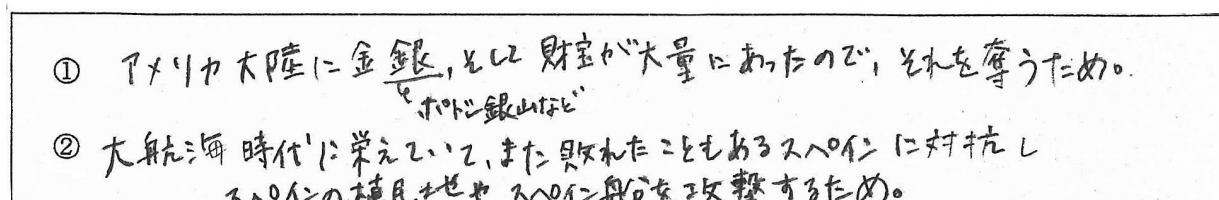 ① アメリカ大陸に金銀,そして財宝が大量にあったので,それを奪うため。
ポトシ銀山など
② 大航海時代に栄えていて、また敗れたこともあるスペインに対抗し
スペインの植民地やスペイン船を攻撃するため。